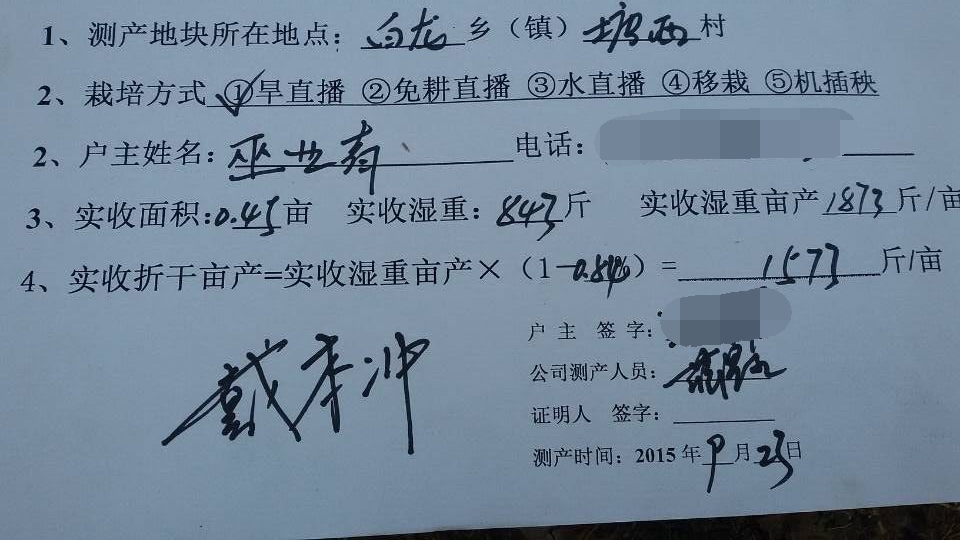 1、测产地块所在地点：白龙乡（镇）塘西村
2、栽培方式①旱直播 ②免耕直播 ③水直播 ④移栽 ⑤机插秧
2、户主姓名：巫世 电话：
3、实收面积：0.45亩 实收湿重：843斤 实收湿重亩产1873斤/亩
4、实收折干亩产=实收湿重亩产×（1-）=1573斤/亩
户 主 签 字：
公司测产人员：
证明人 签字：
测产时间：2015年9月23日